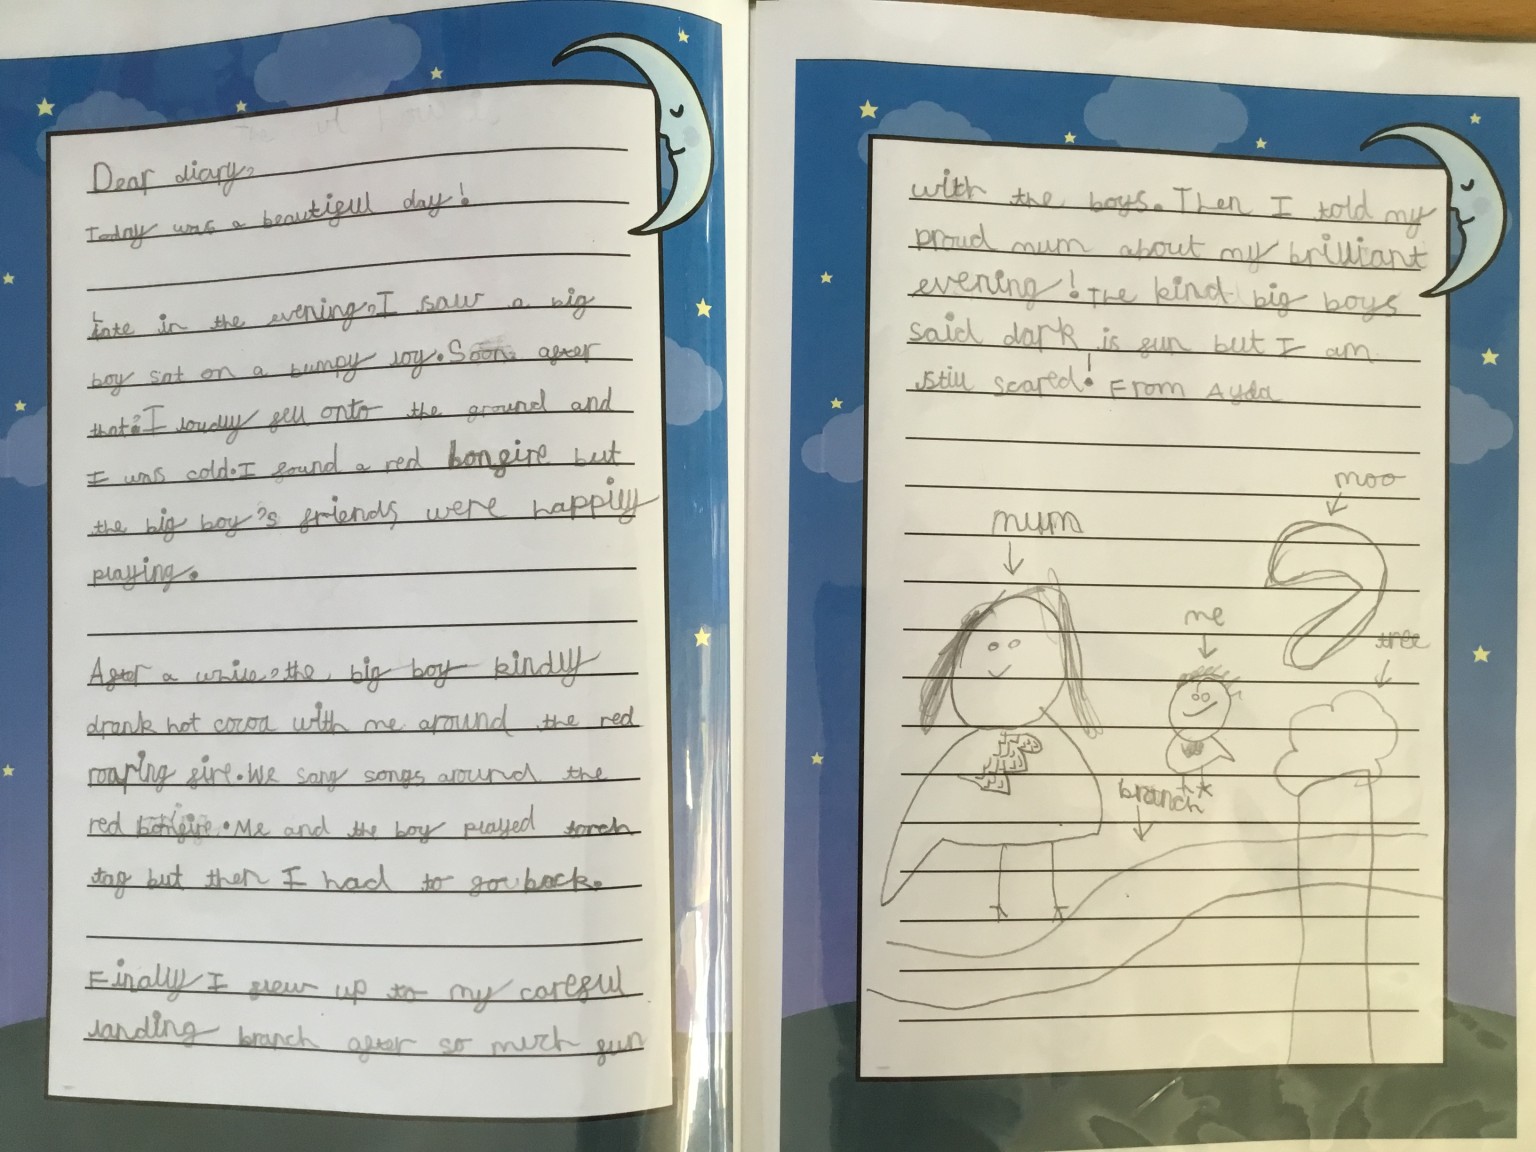 Dear diary,
Today was a beautiful day!
Late in the evening, I saw a big
boy sat on a bumpy log. Soon after
that, I loudly fell onto the ground and
I was cold. I found a red bonfire but
the big boy's friends were happily
playing.
After a while, the big boy kindly
drank hot cocoa with me around the red
roaring fire. We sang songs around the
red bonfire. Me and the boy played torch
tag but then I had to go back.
Finally I flew up to my careful
landing branch after so much fun
with the boys. Then I told my
proud mum about my brilliant
evening! The kind big boys
said dark is fun but I am
still scared! From Ayda
moo
mum
me
tree
branch